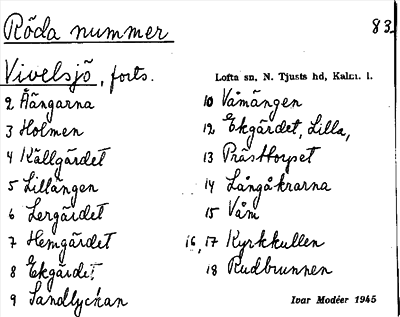 Röda nummer
83.
Vivelsjö, forts.
Lofta sn, N. Tjusts hd, Kalm. l.
2 Åängarna
3 Holmen
4 Källgärdet
5 Lillängen
6 Lergärdet
7 Hemgärdet
8 Ekgärdet
9 Sandlyckan
10 Våmängen
12 Ekgärdet, Lilla,
13 Prästtorpet
14 Långåkrarna
15 Våm
16, 17 Kyrkkullen
18 Rudbrunnen
Ivar Modéer 1945